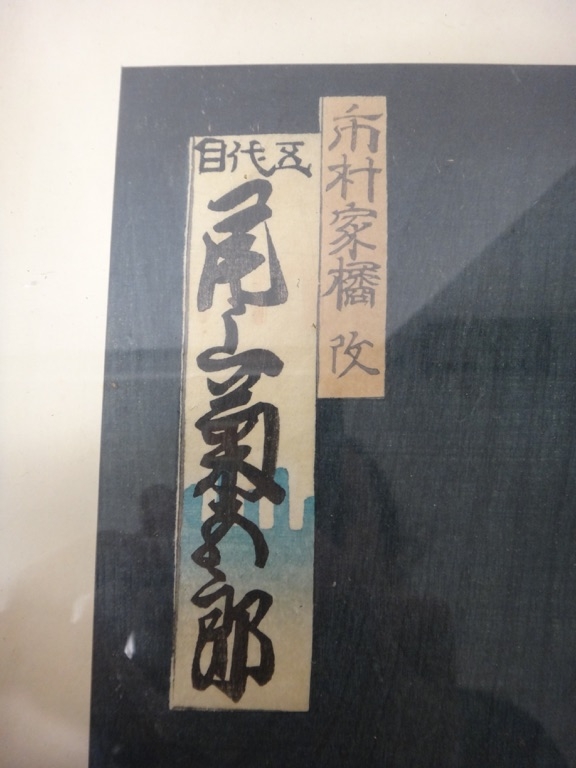 市村家橘 改
五代目
尾上菊五郎